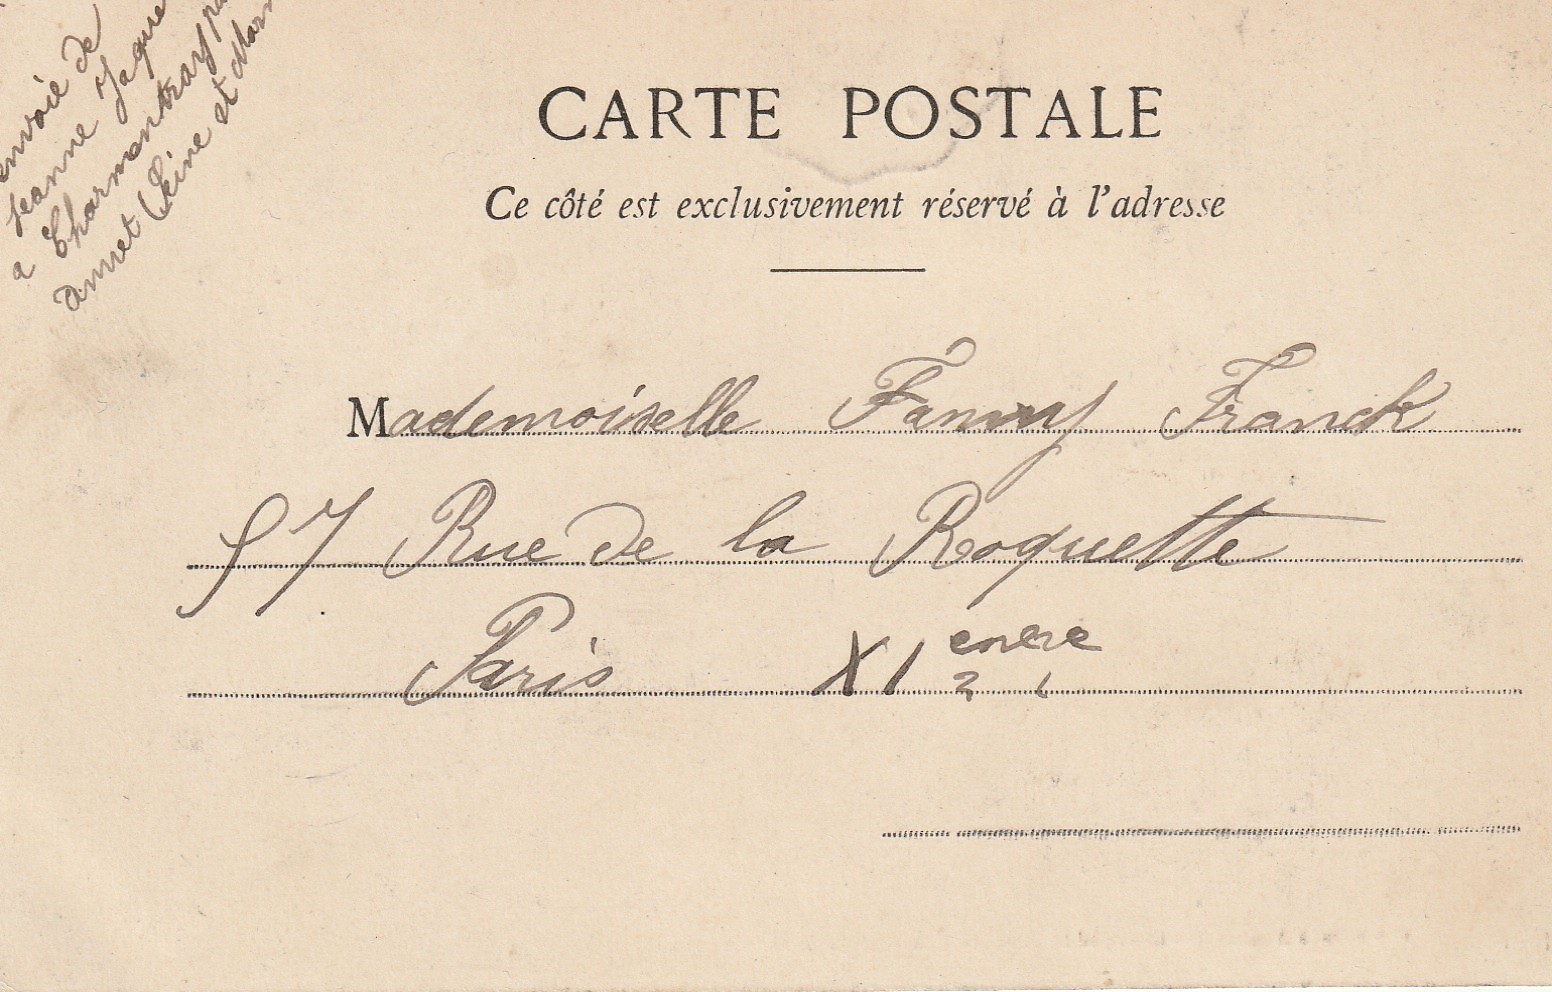 envoie de
Jeanne Jaque
a Charmentray pa
Annet Seine et Marn
CARTE POSTALE
Ce côté est exclusivement réservé à l'adresse
Mademoiselle Fanny Franck
57 Rue de la Roquette
Paris XI eme